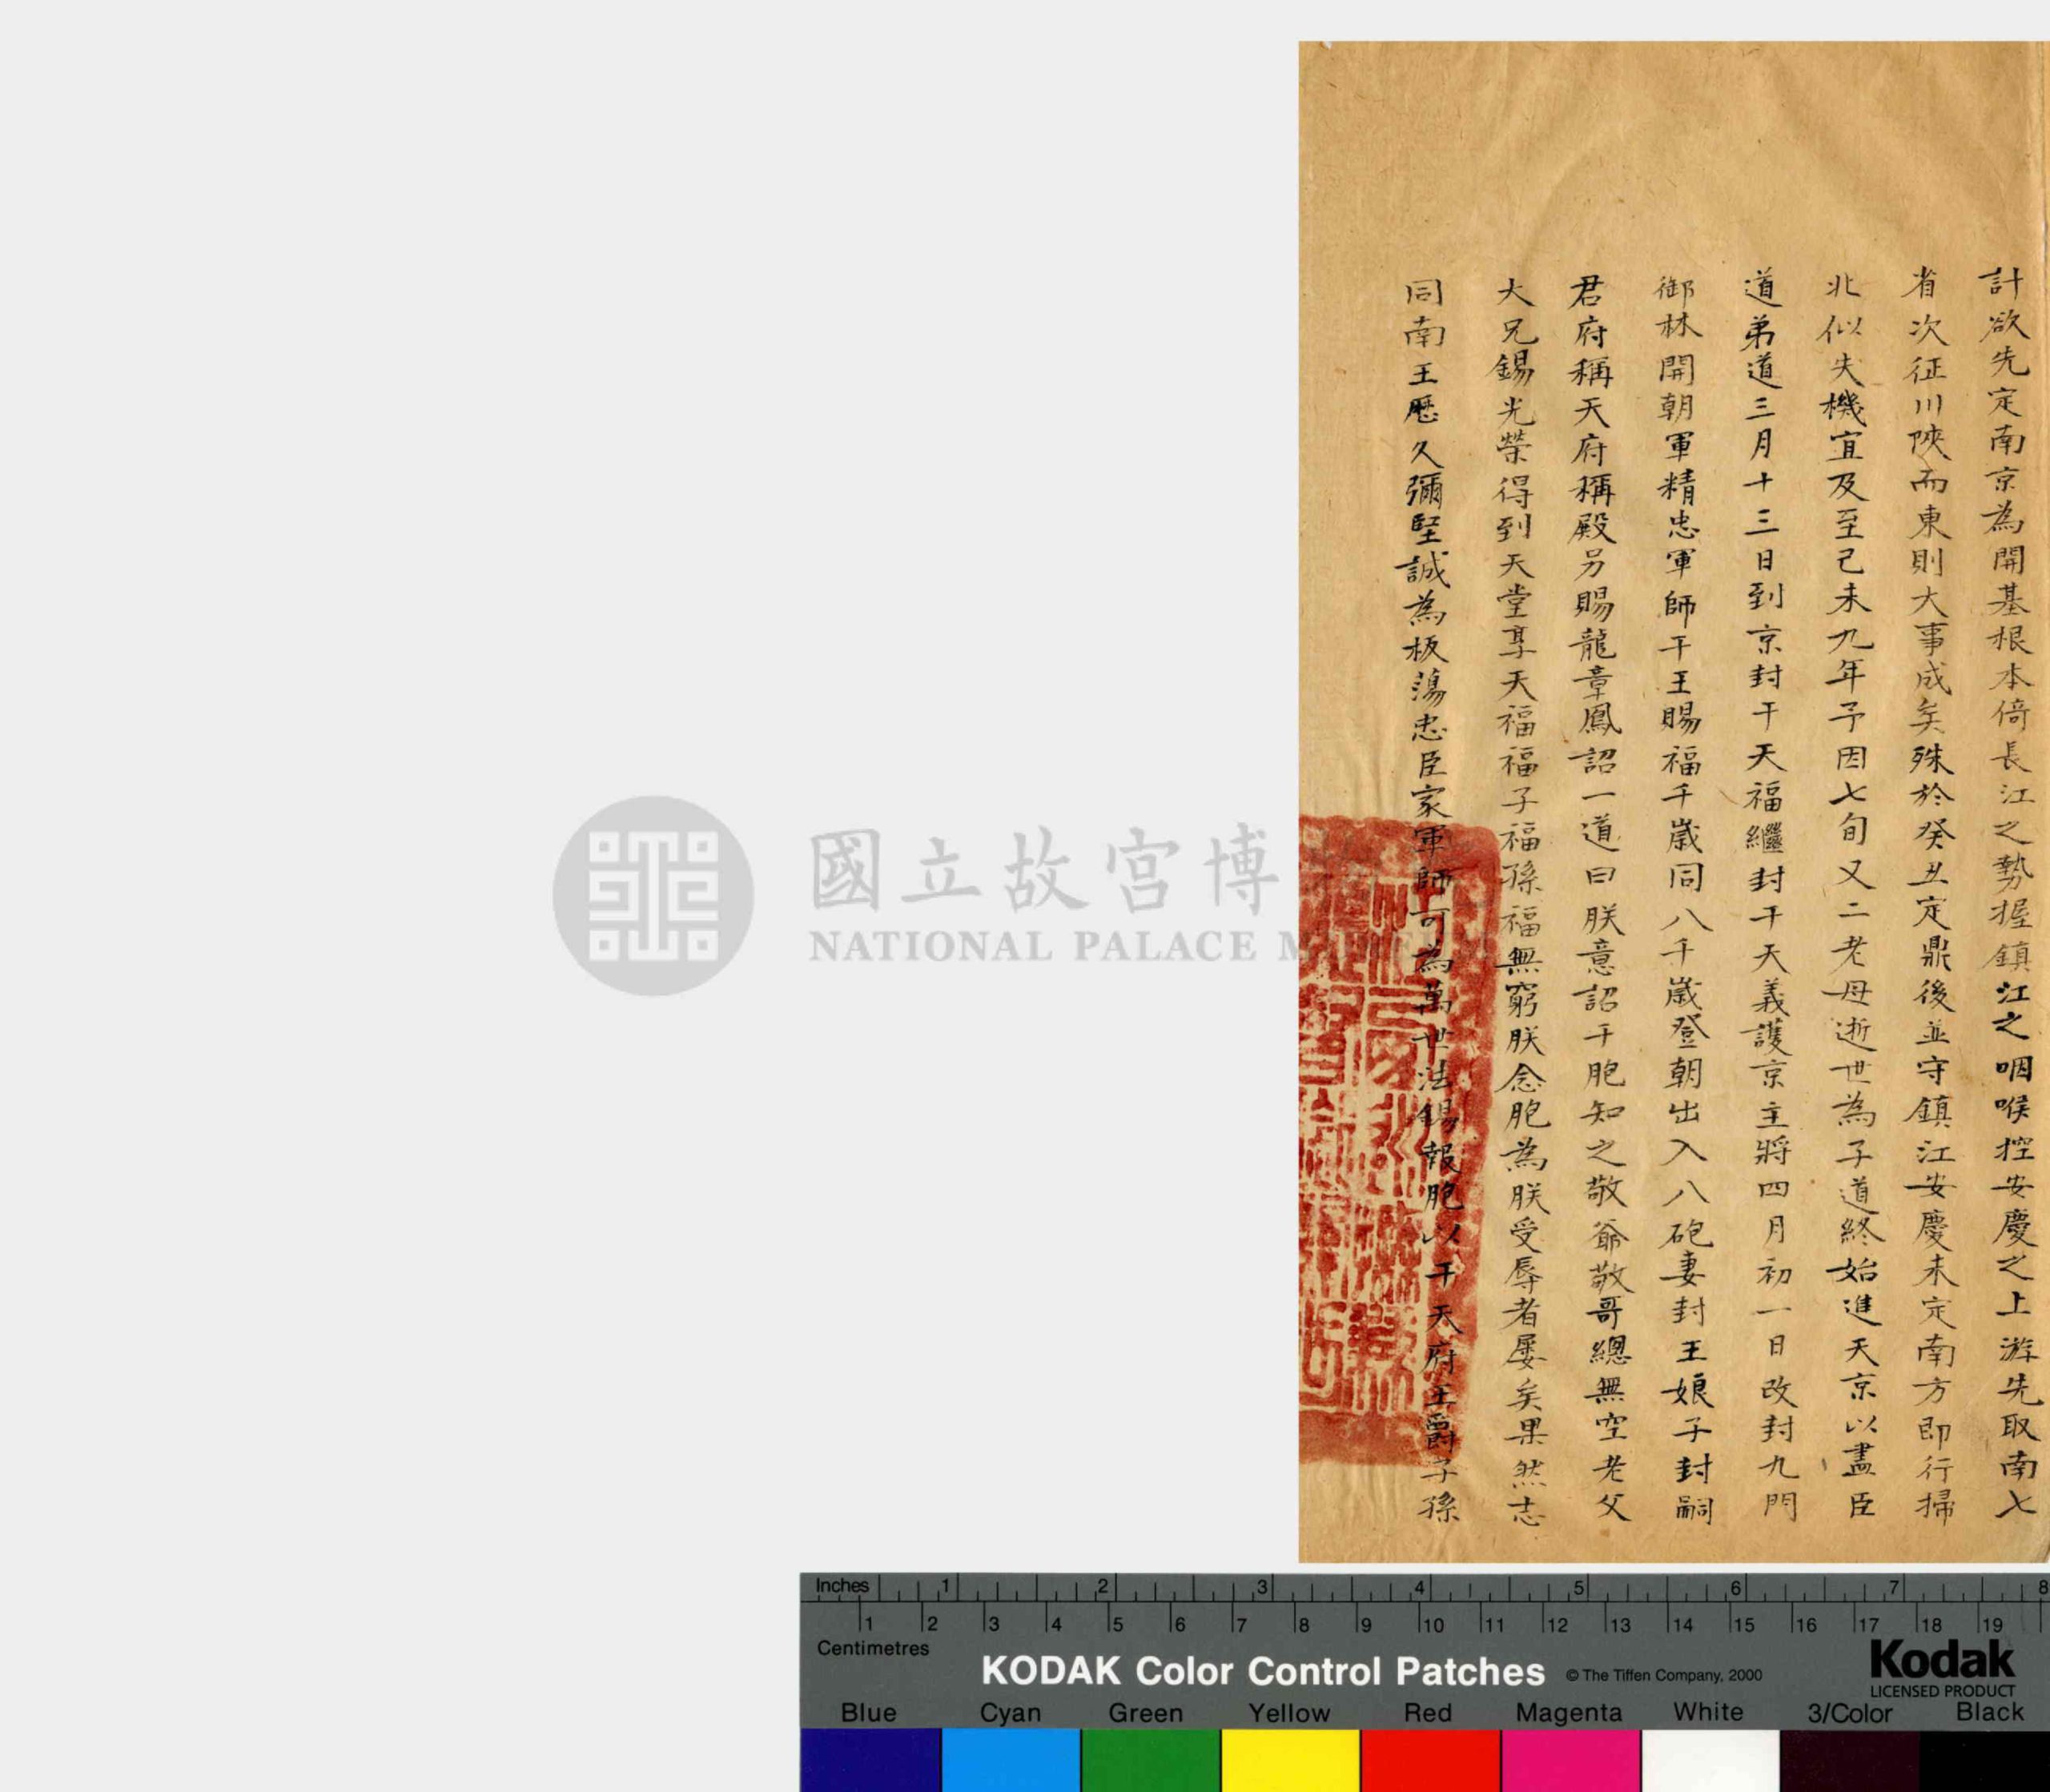 計欲先定南京為開基根本倚長江之勢握鎮江之咽喉控安慶之上游先取南七
省次征川陝而東則大事成矣殊於癸丑定鼎後並守鎮江安慶未定南方即行掃
北似失機宜及至己未九年予因七旬又二老母逝世為子道終始進天京以盡臣
道弟道三月十三日到京封干天福繼封干天義護京主將四月初一日改封九門
御林開朝軍精忠軍師干王賜福千歲同八千歲登朝出入八砲妻封王娘子封嗣
君府稱天府稱殿另賜龍章鳳詔一道曰朕意詔干胞知之敬爺敬哥總無空老父
大兄錫光榮得到天堂享天福福子福孫福無窮朕念胞為朕受辱者屢矣果然志
同南王歷久彌堅誠為板蕩忠臣家軍師可為萬世法錫報胞以干天府王爵子孫
國立故宮博
NATIONAL PALACE MUSEUM
Inches 1 2 3 4 5 6 7 8
1 2 3 4 5 6 7 8 9 10 11 12 13 14 15 16 17 18 19
Centimetres
KODAK Color Control Patches © The Tiffen Company, 2000
Kodak
LICENSED PRODUCT
Blue Cyan Green Yellow Red Magenta White 3/Color Black